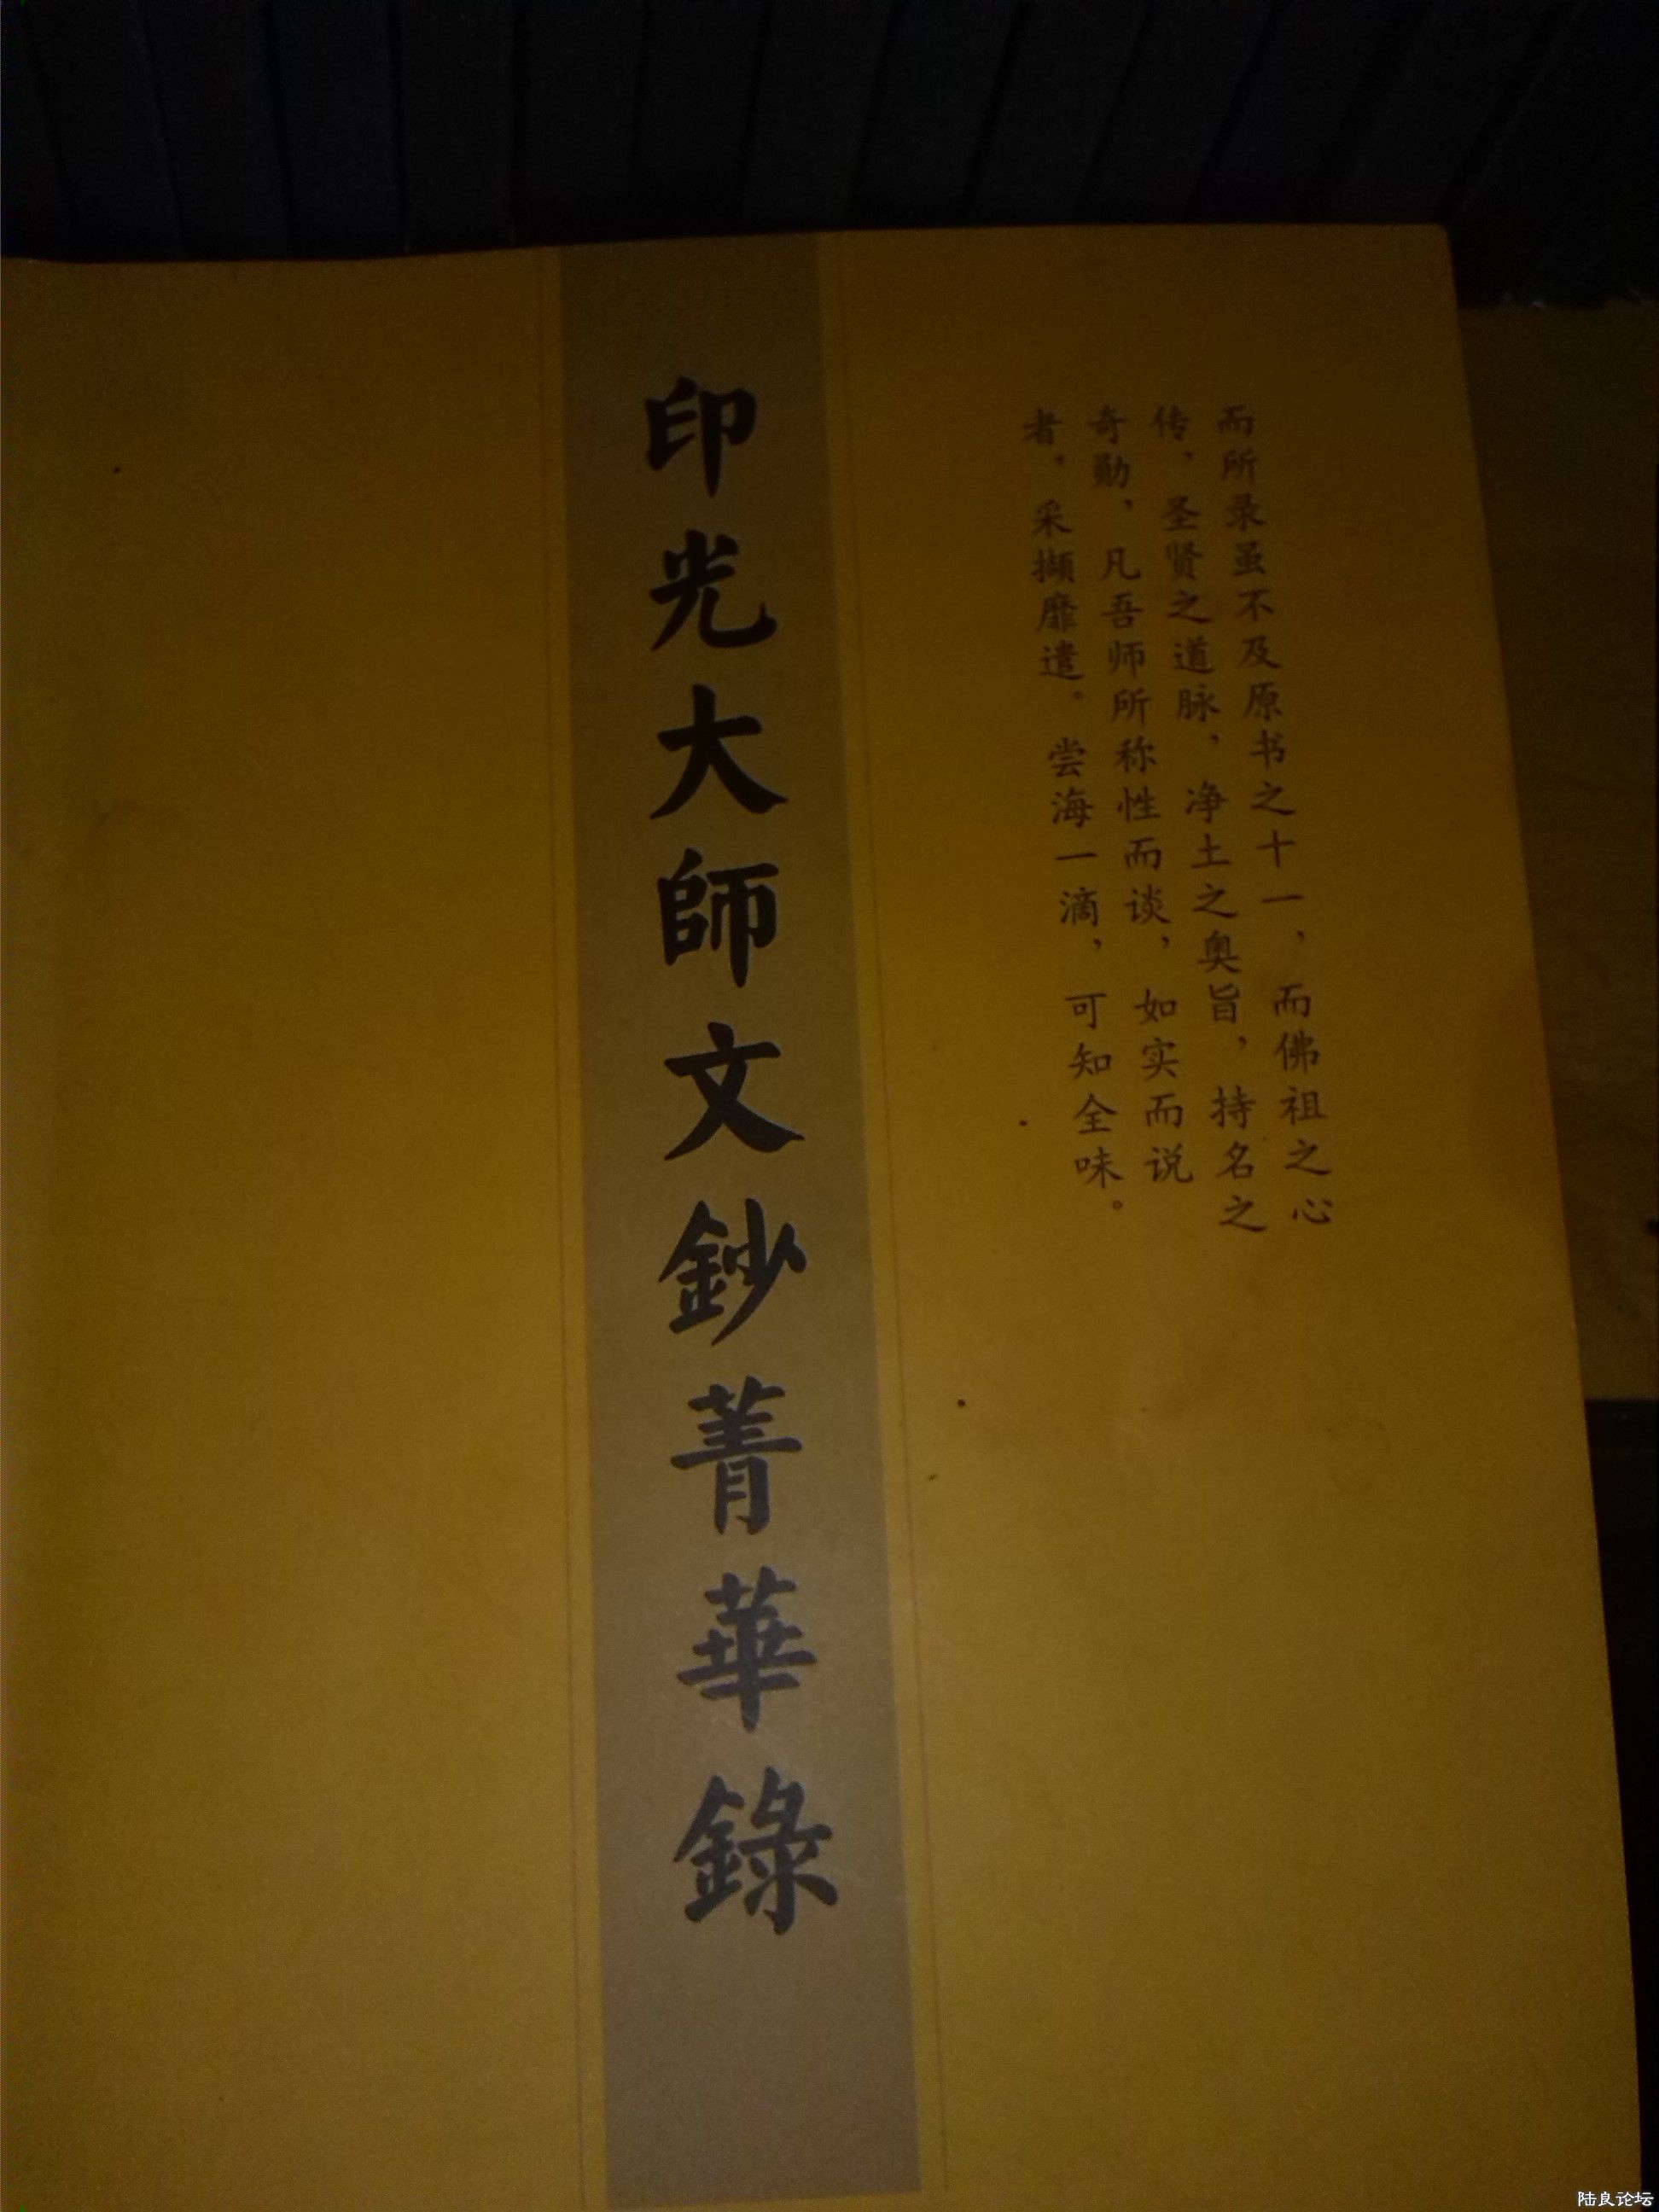 而所录虽不及原书之十一，而佛祖之心
传、圣贤之道脉，净土之奥旨，持名之
奇勋，凡吾师所称性而谈，如实而说
者，采撷靡遗。尝海一滴，可知全味。
印光大師文鈔菁華錄
陆良论坛